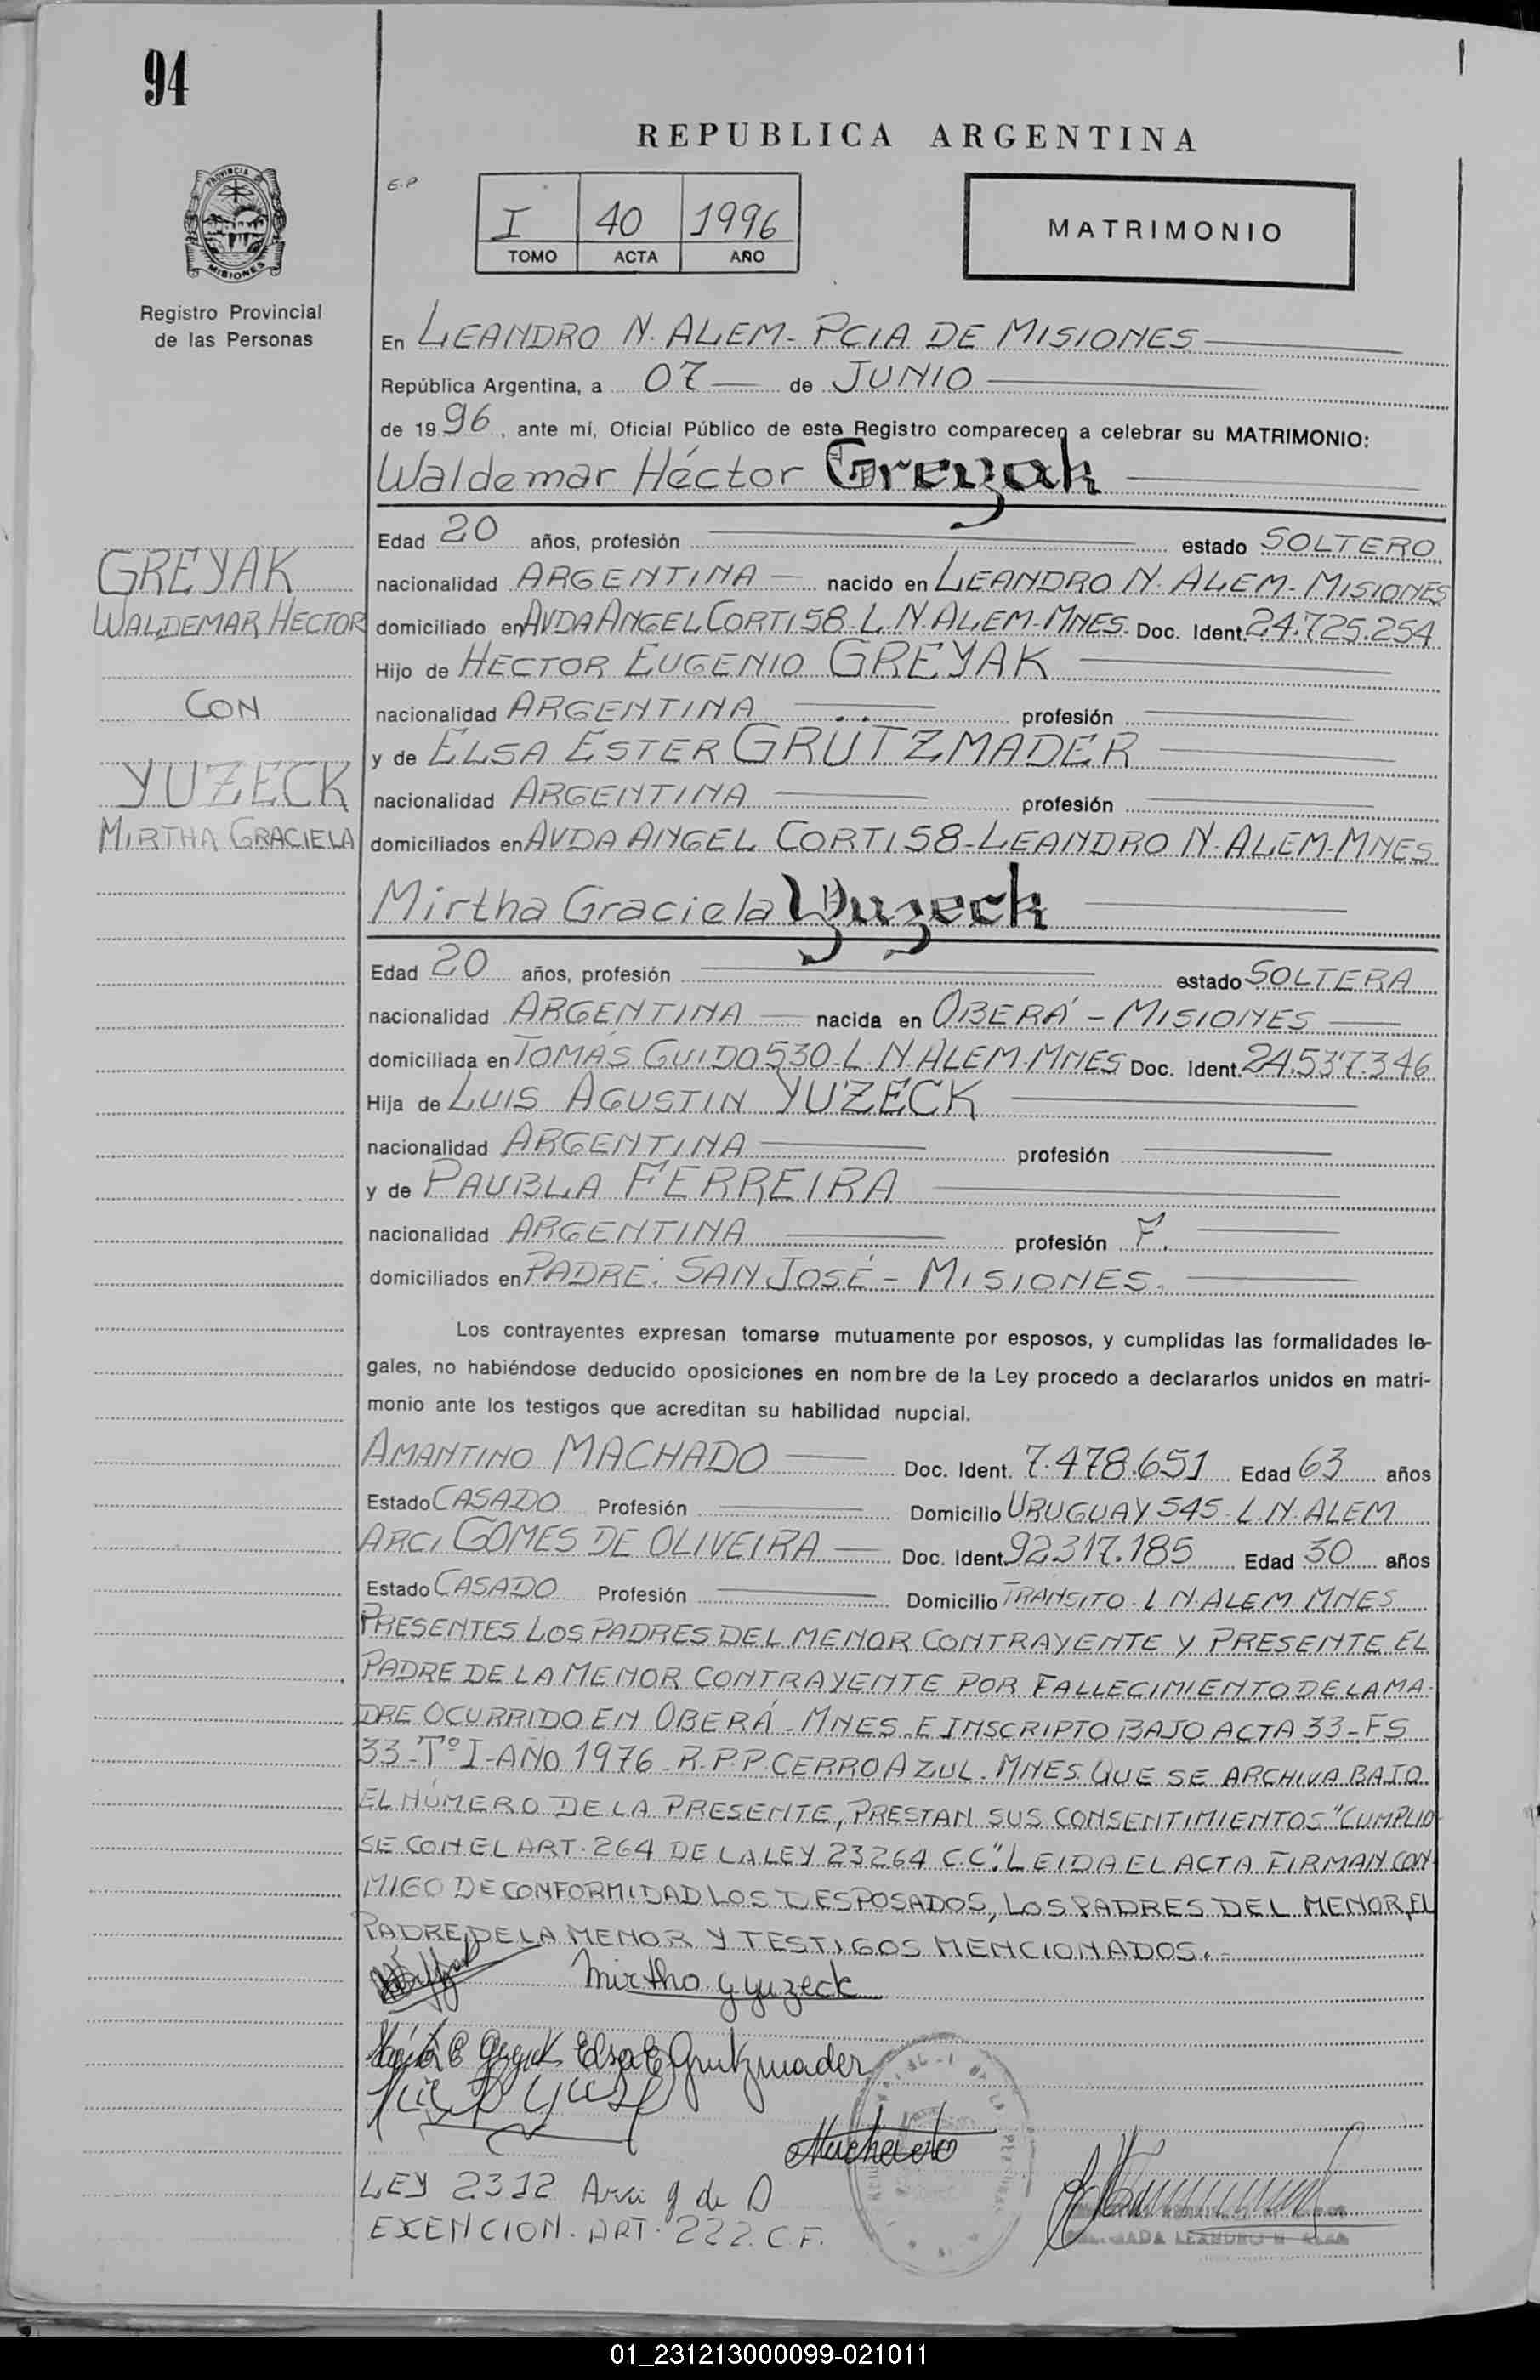 94
REPUBLICA ARGENTINA
E.P
I 40 1996
TOMO ACTA AÑO
MATRIMONIO
PROVINCIA DE
MISIONES
Registro Provincial
de las Personas
En LEANDRO N. ALEM - PCIA DE MISIONES
República Argentina, a 07 de JUNIO
de 1996, ante mí, Oficial Público de este Registro comparecen a celebrar su MATRIMONIO:
Waldemar Héctor Greyak
Edad 20 años, profesión estado SOLTERO
GREYAK
nacionalidad ARGENTINA nacido en LEANDRO N. ALEM - MISIONES
WALDEMAR HECTOR
domiciliado en AVDA ANGEL CORTI 58 - L. N. ALEM - MNES. Doc. Ident. 24.725.254
Hijo de HECTOR EUGENIO GREYAK
CON
nacionalidad ARGENTINA profesión
y de ELSA ESTER GRÜTZMADER
YUZECK
nacionalidad ARGENTINA profesión
MIRTHA GRACIELA
domiciliados en AVDA ANGEL CORTI 58 - LEANDRO N. ALEM - MNES
Mirtha Graciela Yuzeck
Edad 20 años, profesión estado SOLTERA
nacionalidad ARGENTINA nacida en OBERÁ - MISIONES
domiciliada en TOMÁS GUIDO 530 - L. N. ALEM - MNES Doc. Ident. 24.537.346
Hija de LUIS AGUSTIN YUZECK
nacionalidad ARGENTINA profesión
y de PAUBLA FERREIRA
nacionalidad ARGENTINA profesión F.
domiciliados en PADRE: SAN JOSÉ - MISIONES.
Los contrayentes expresan tomarse mutuamente por esposos, y cumplidas las formalidades le-
gales, no habiéndose deducido oposiciones en nombre de la Ley procedo a declararlos unidos en matri-
monio ante los testigos que acreditan su habilidad nupcial.
AMANTINO MACHADO Doc. Ident. 7.478.651 Edad 63 años
Estado CASADO Profesión Domicilio URUGUAY 545 - L. N. ALEM
ARCI GOMES DE OLIVEIRA Doc. Ident. 92317.185 Edad 30 años
Estado CASADO Profesión Domicilio TRANSITO - L N. ALEM MNES
PRESENTES LOS PADRES DEL MENOR CONTRAYENTE Y PRESENTE EL
PADRE DE LA MENOR CONTRAYENTE POR FALLECIMIENTO DE LA MA-
DRE OCURRIDO EN OBERÁ - MNES - E INSCRIPTO BAJO ACTA 33 - FS
33 - Tº I - AÑO 1976 - R. P. P. CERRO AZUL - MNES QUE SE ARCHIVA BAJO
EL NÚMERO DE LA PRESENTE, PRESTAN SUS CONSENTIMIENTOS "CUMPLIO
SE CON EL ART. 264 DE LA LEY 23264 C.C". LEIDA EL ACTA FIRMAN CON-
MIGO DE CONFORMIDAD LOS DESPOSADOS, LOS PADRES DEL MENOR, EL
PADRE DE LA MENOR Y TESTIGOS MENCIONADOS. -
Mirtha G yuzeck
Elsa E Grutzmader
Machado
LEY 2312 Arci g de O
EXENCION. ART. 222. C.F.
LEANDRO N. ALEM
01_231213000099-021011